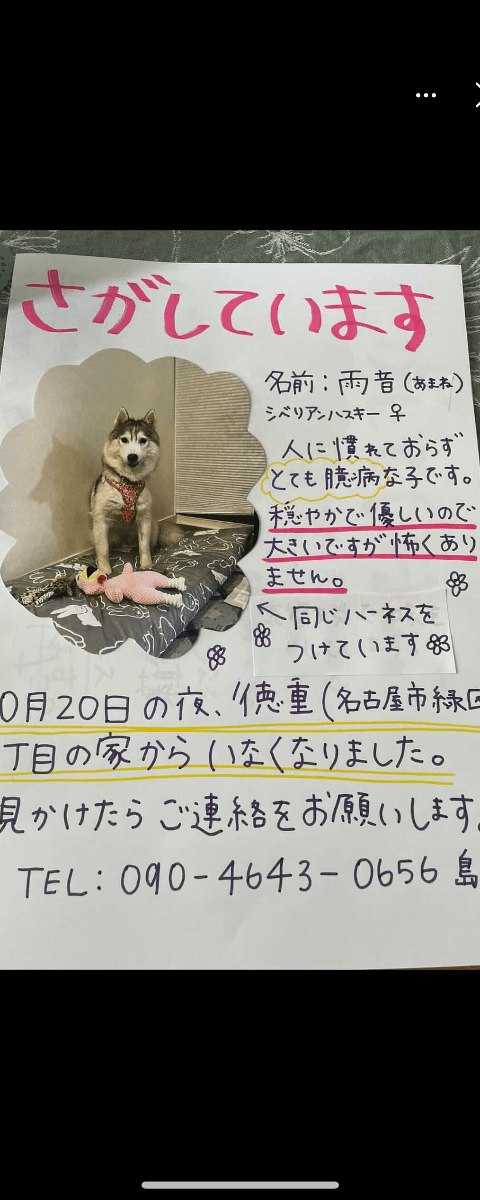 さがしています
名前：雨音（あまね）
シベリアンハスキー ♀
人に慣れておらず
とても臆病な子です。
穏やかで優しいので
大きいですが怖くあり
ません。
← 同じハーネスを
つけています
0月20日の夜、徳重（名古屋市緑区
丁目の家からいなくなりました。
見かけたらご連絡をお願いします。
TEL：090-4643-0656 島